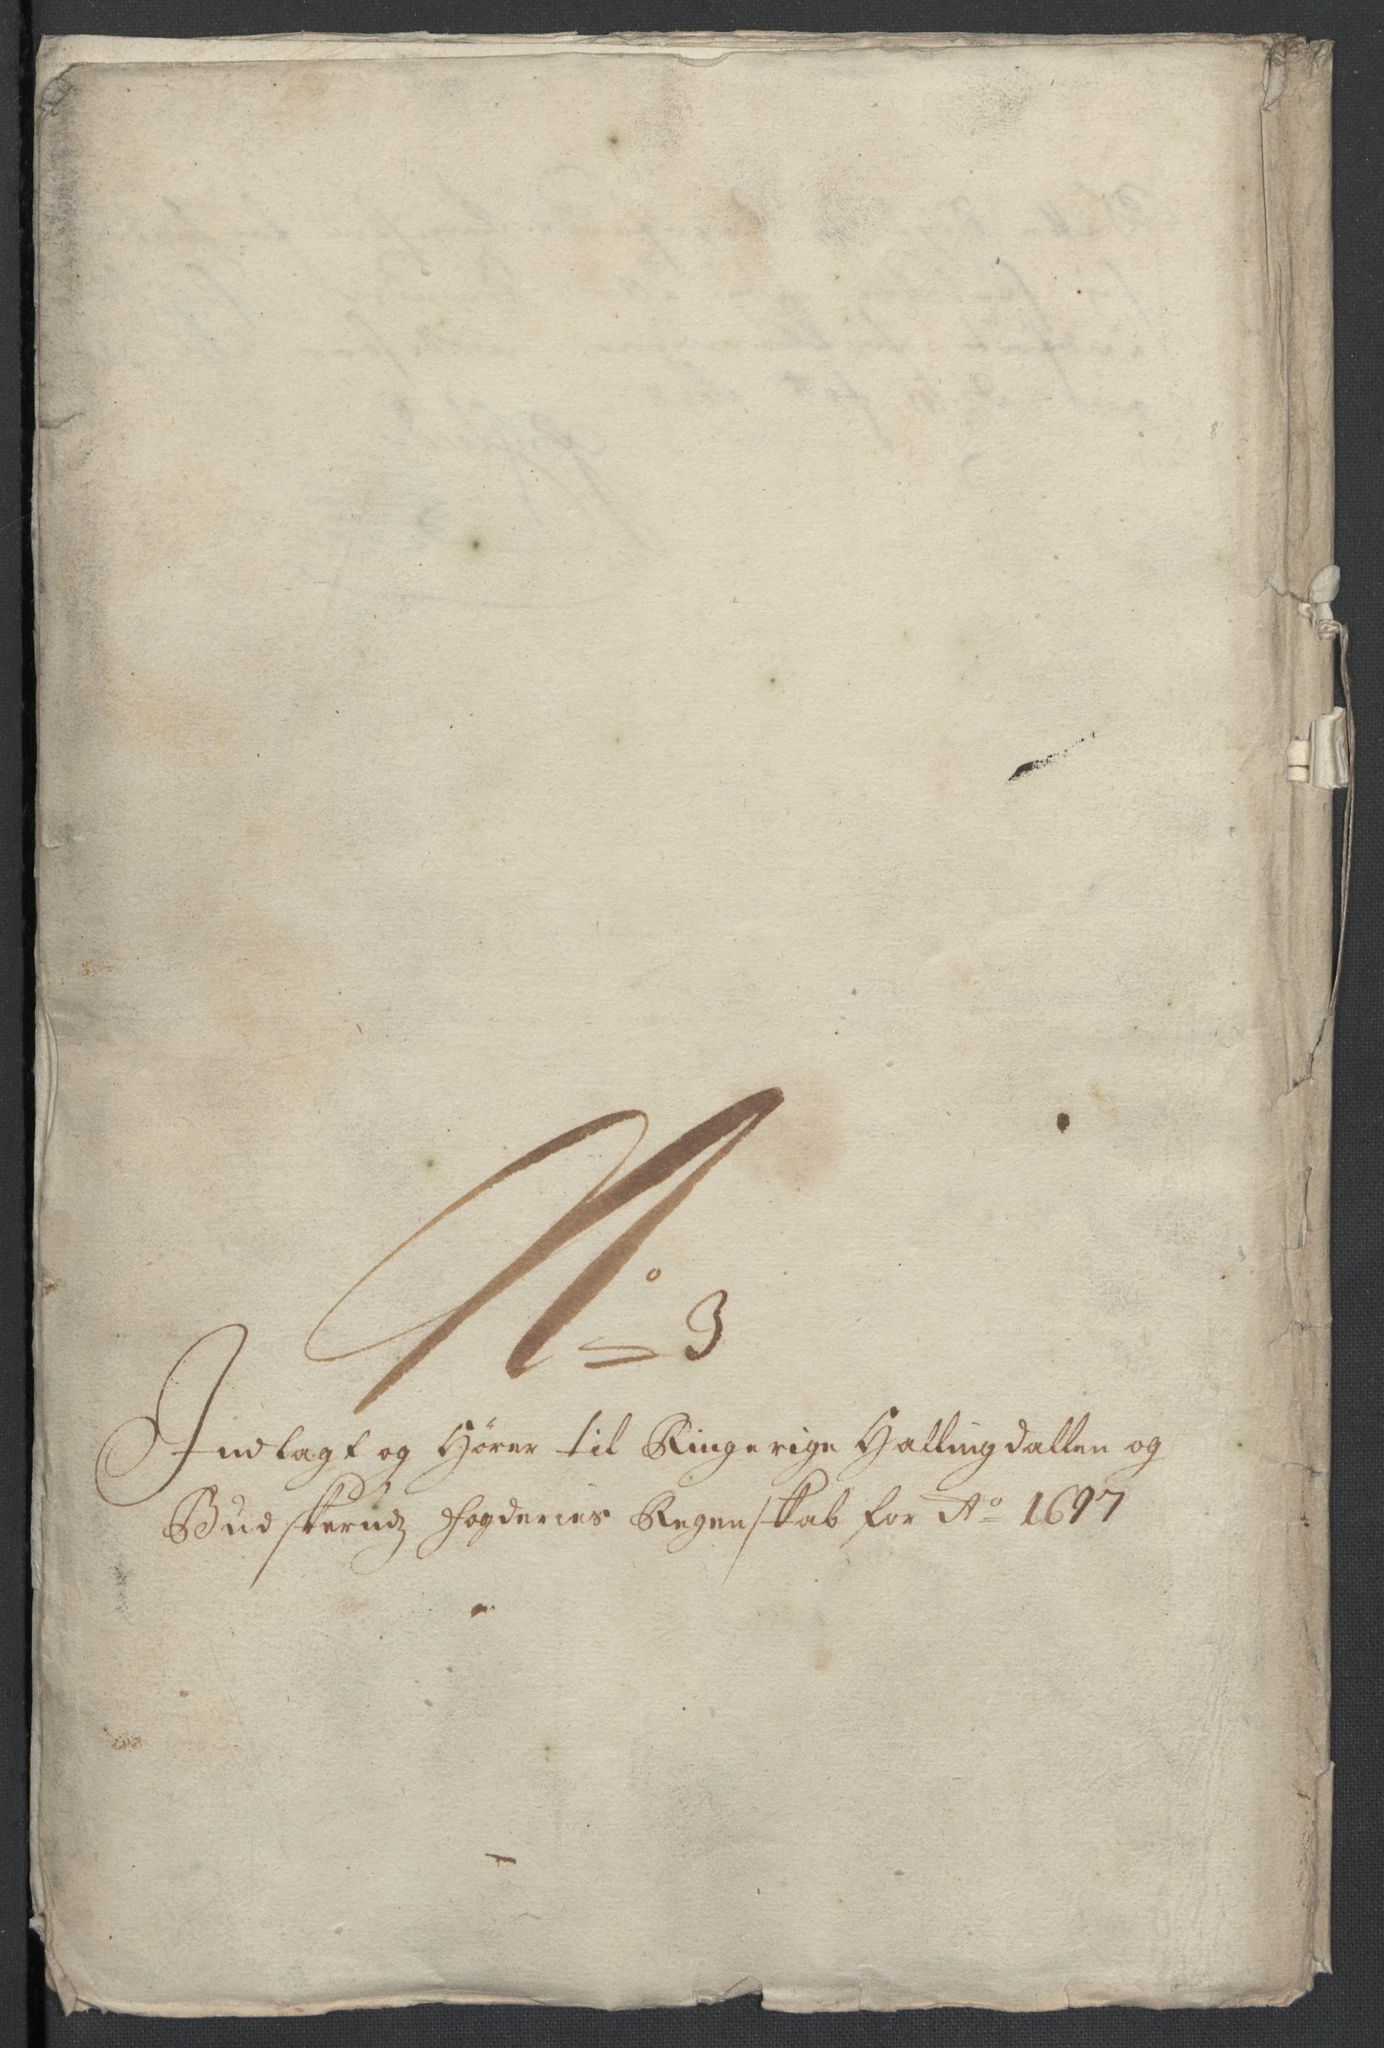 No 3
Indlagt og Hører til Ringerige Hallingdallen og
Budskerudz fogderies Regenskab for Ao 1697